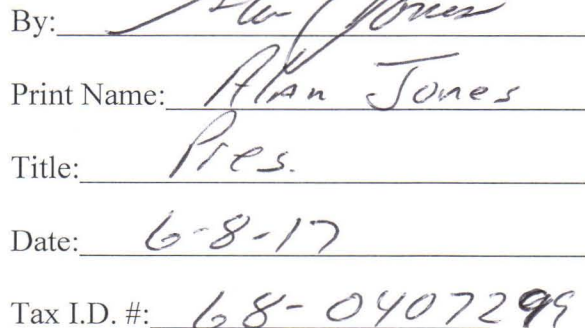 By: Alan Jones
Print Name: Alan Jones
Title: Pres.
Date: 6-8-17
Tax I.D. #: 68-0407299